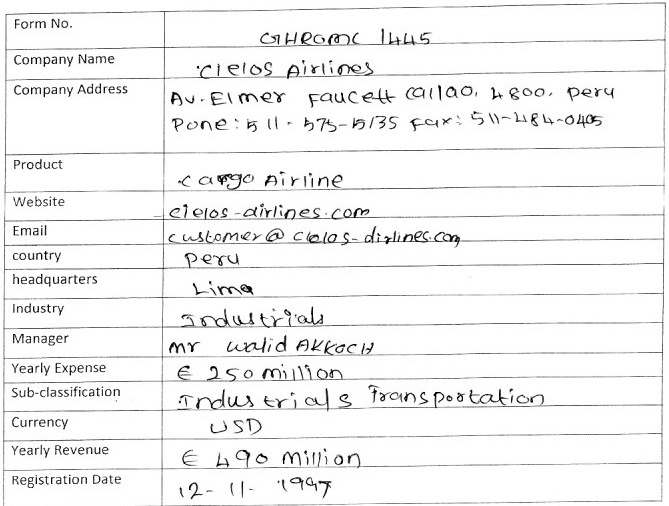 Form No. GHROMC 1445
Company Name Cielos Airlines
Company Address Av. Elmer Faucett Callao, 4800, Peru
Pone: 511-575-5135 Fax: 511-484-0405
Product Cargo Airline
Website cielos-airlines.com
Email customer@cielos-airlines.com
country Peru
headquarters Lima
Industry Industrials
Manager Mr Walid AKKOCH
Yearly Expense € 250 million
Sub-classification Industrials Transportation
Currency USD
Yearly Revenue € 490 Million
Registration Date 12-11-1997